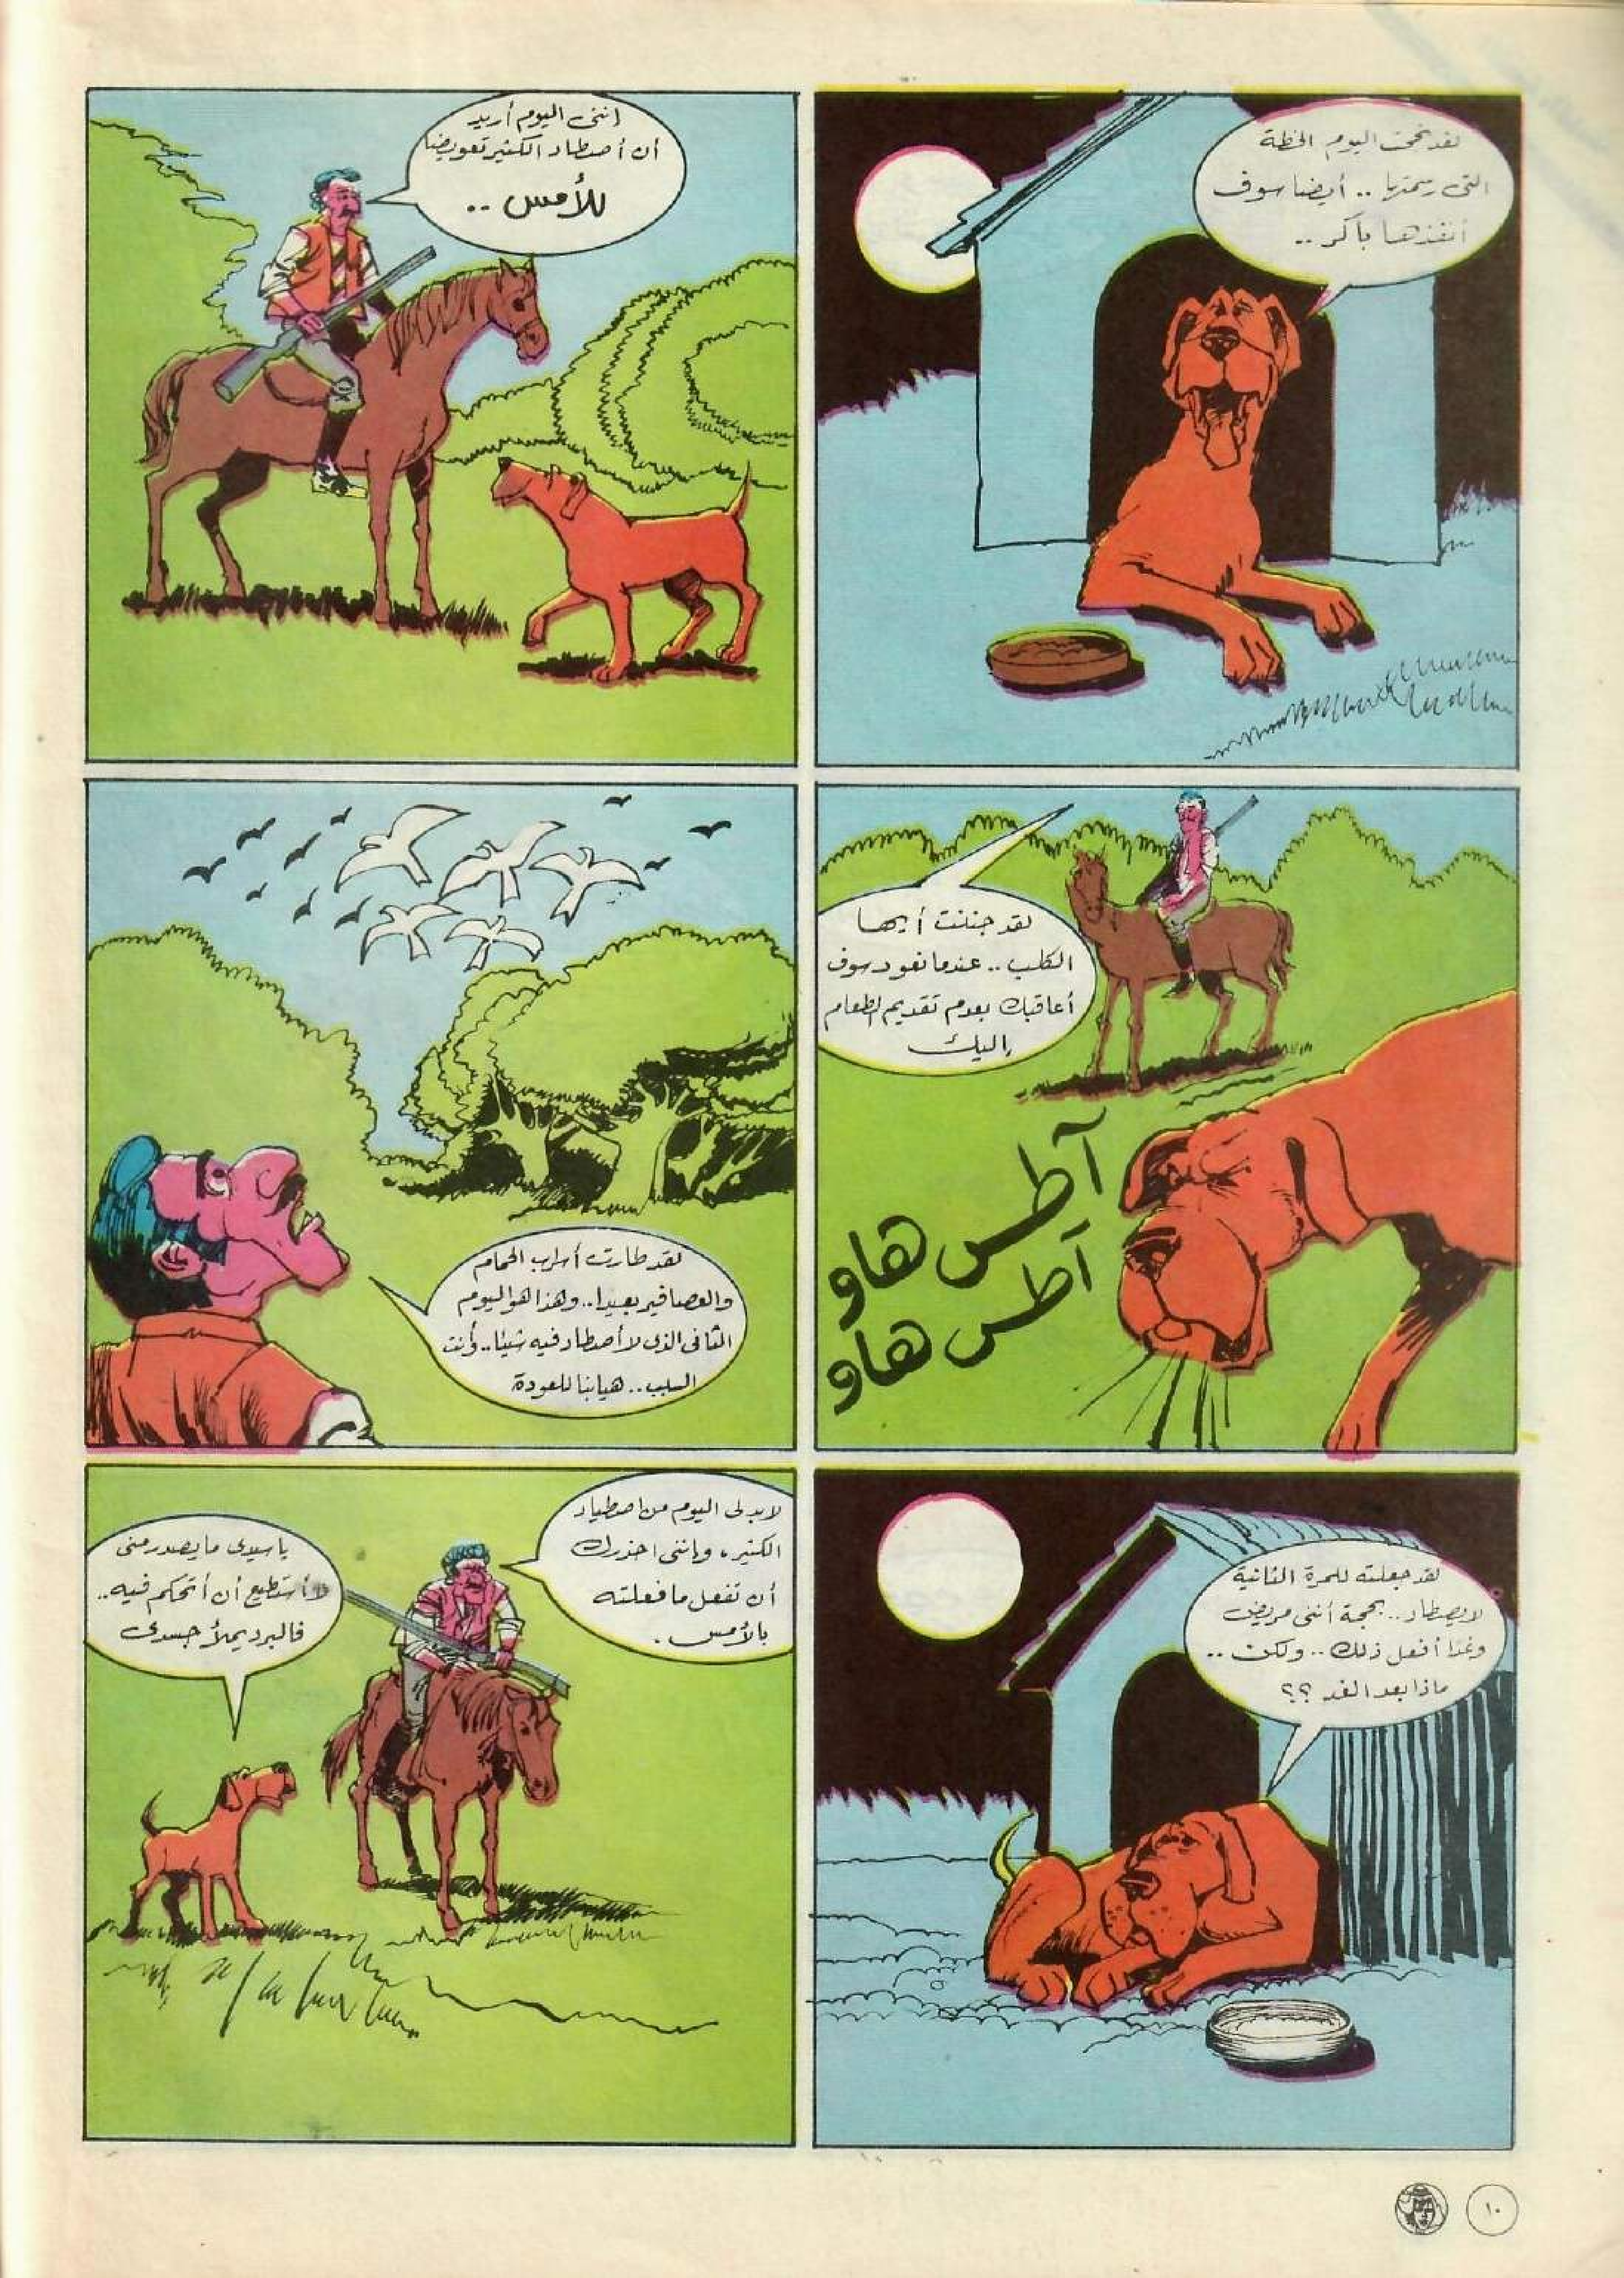 لقد نجحت اليوم الخطة
التى رسمتها .. أيضا سوف
أنفذها باكر ..
إننى اليوم أريد
أن أصطاد الكثير تعويضا
للأمس ..
لقد جننت أيها
الكلب .. عندما نعود سوف
أعاقبك بعدم تقديم الطعام
إليك
آطس هاو
آطس هاو
لقد طارت أسراب الحمام
والعصافير بعيدا .. وهذا هو اليوم
الثانى الذى لا أصطاد فيه شيئا .. وأنت
السبب .. هيا بنا للعودة
لقد جعلته للمرة الثانية
لا يصطاد .. بحجة أننى مريض
وغدا أفعل ذلك .. ولكن ..
ماذا بعد الغد ؟؟
لابد لى اليوم من اصطياد
الكثير، وإننى احذرك
أن تفعل ما فعلته
بالأمس .
يا سيدى ما يصدر منى
لا أستطيع أن أتحكم فيه ..
فالبرد يملأ جسدى
١٠